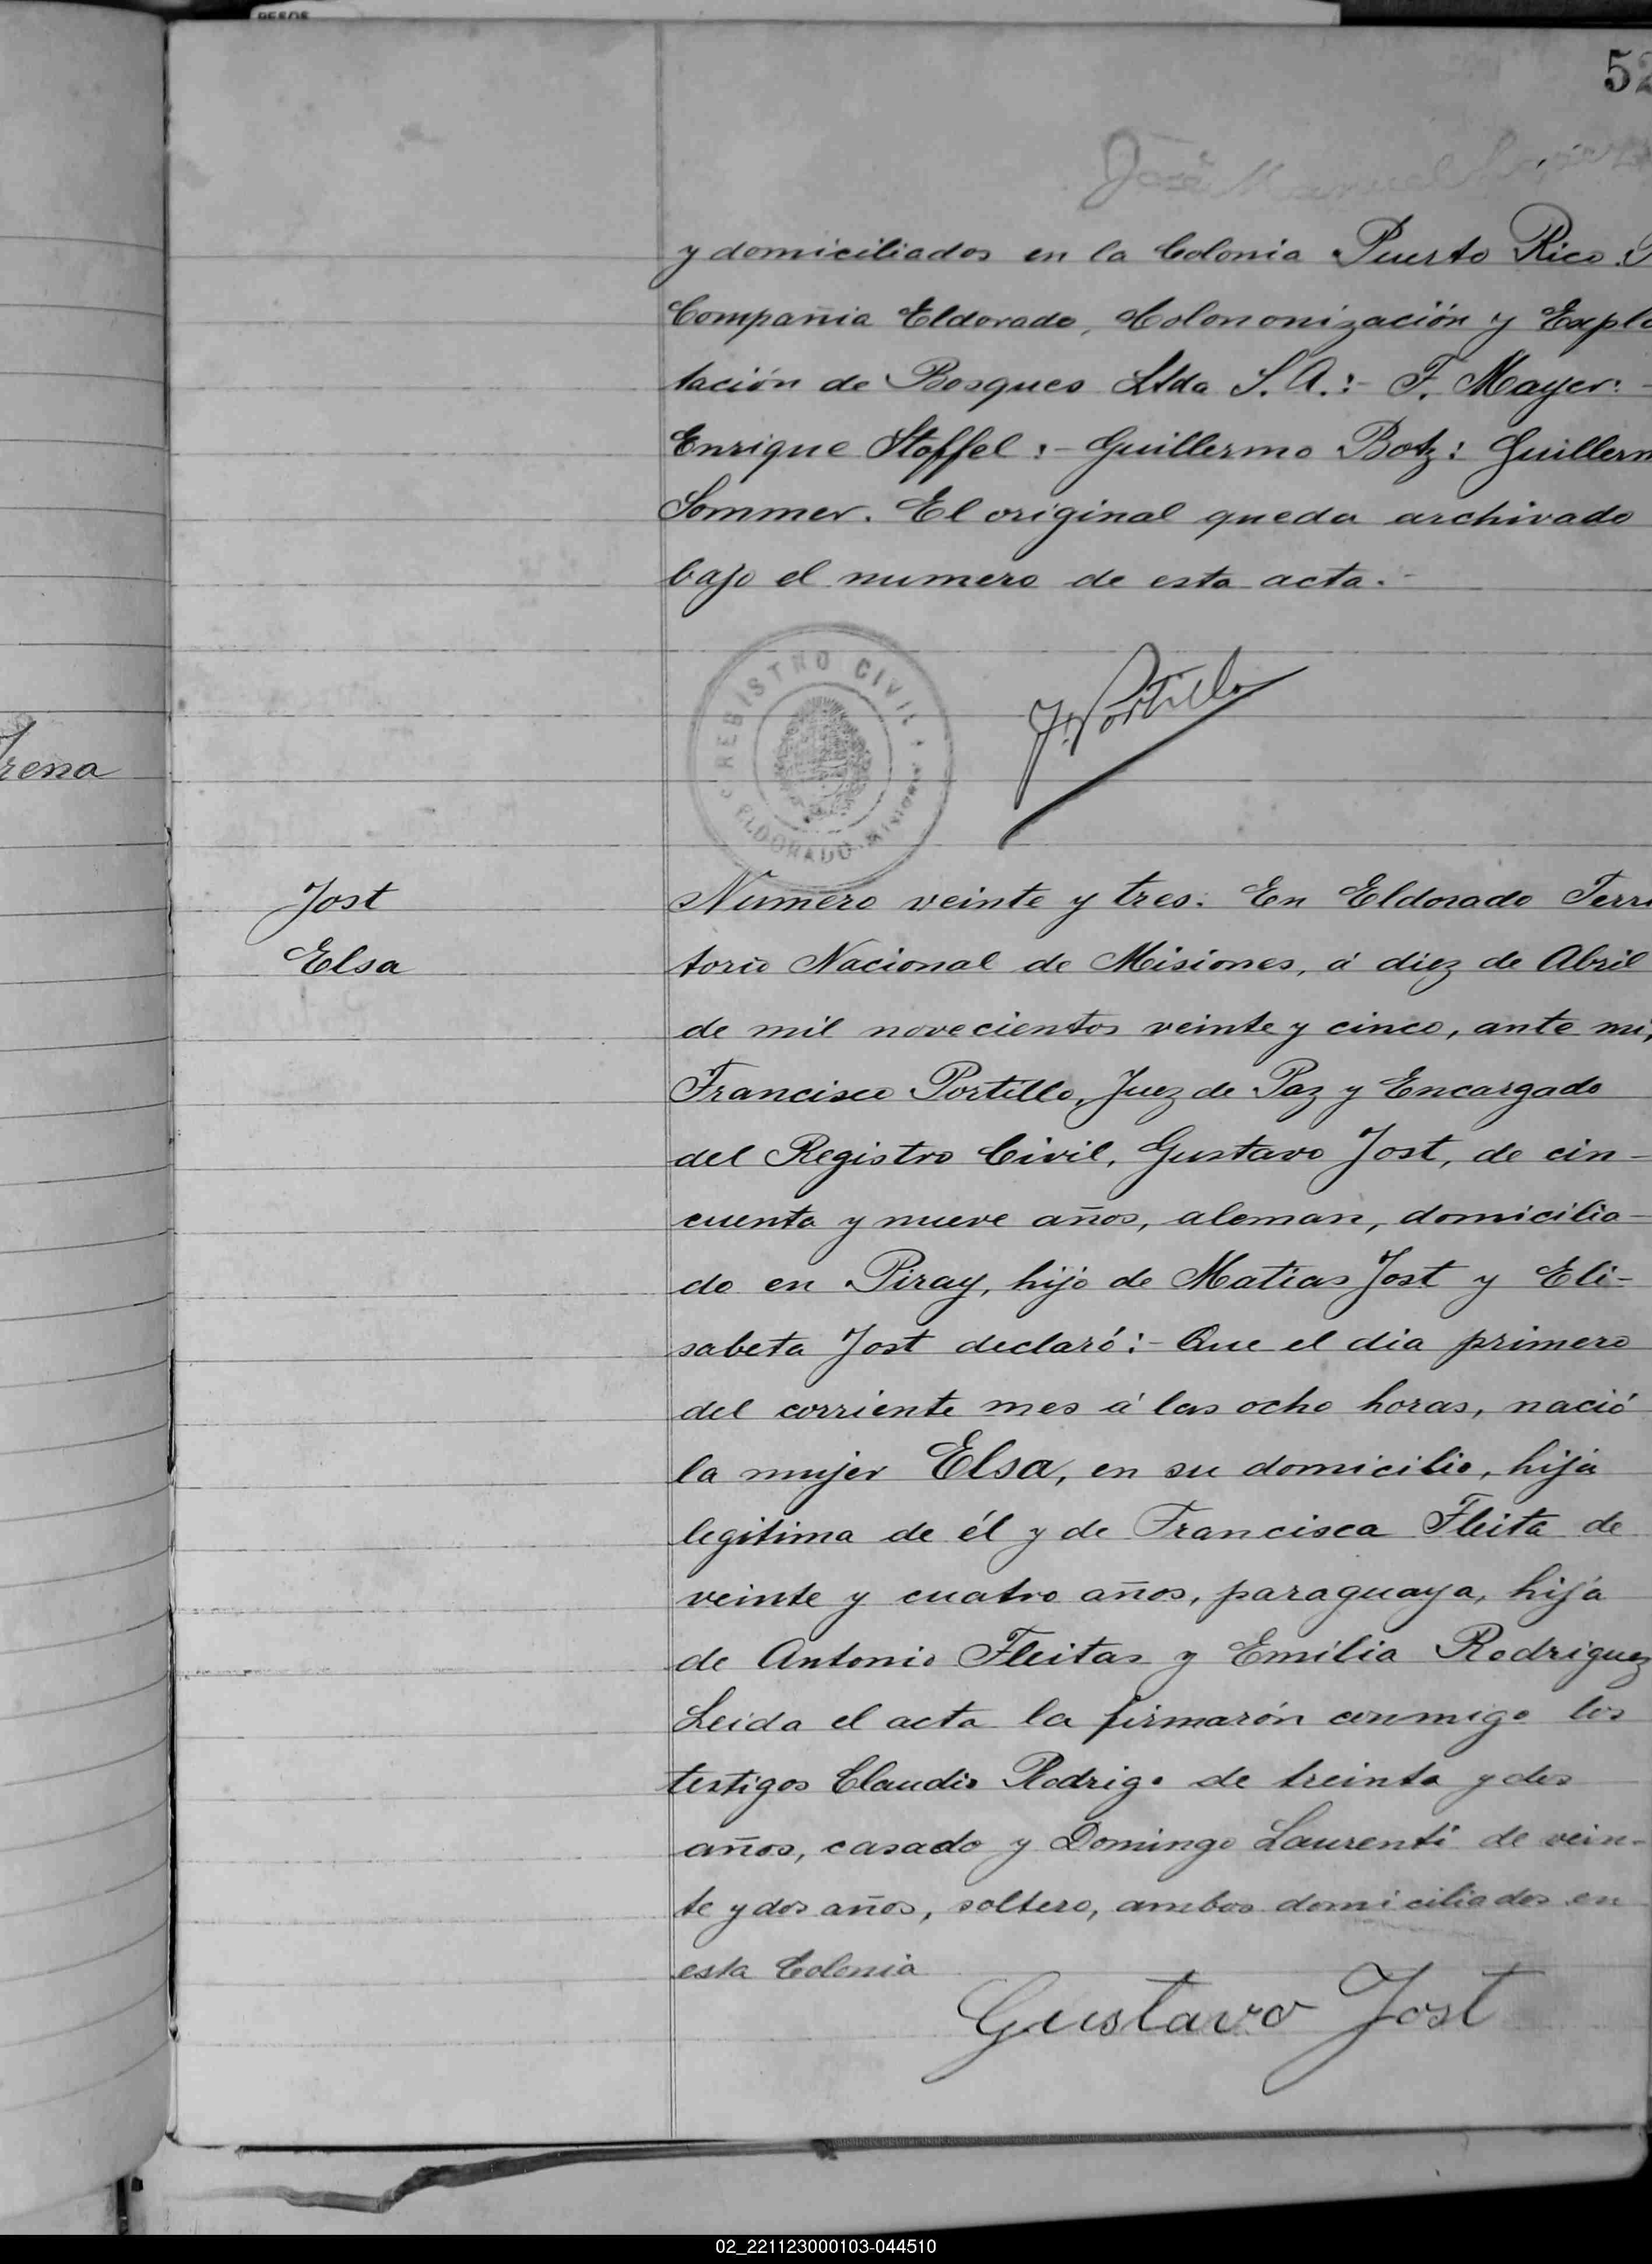 PESOS
5
José Manuel
y domiciliados en la Colonia Puerto Rico:
Compañia Eldorado, Colononización y Explo
tación de Bosques Ltda S. A.:- F. Mayer:-
Enrique Stoffel:- Guillermo Botz: Guillerm
Sommer. El original queda archivado
bajo el numero de esta acta.-
REGISTRO CIVIL
ELDORADO-Misiones
J. Portillo
rena
Jost
Elsa
Numero veinte y tres: En Eldorado Terri
torio Nacional de Misiones, á diez de Abril
de mil novecientos veinte y cinco, ante mi,
Francisco Portillo, Juez de Paz y Encargado
del Registro Civil, Gustavo Jost, de cin-
cuenta y nueve años, aleman, domicilia-
do en Piray, hijo de Matias Jost y Eli-
sabeta Jost declaró:- Que el dia primero
del corriente mes á las ocho horas, nació
la mujer Elsa, en su domicilio, hija
legitima de él y de Francisca Fleita de
veinte y cuatro años, paraguaya, hija
de Antonio Fleitas y Emilia Rodriguez
Leida el acta la firmarón conmigo los
testigos Claudio Rodrigo de treinta y dos
años, casado y Domingo Laurenti de vein-
te y dos años, soltero, ambos domiciliados en
esta Colonia
Gustavo Jost
02_221123000103-044510